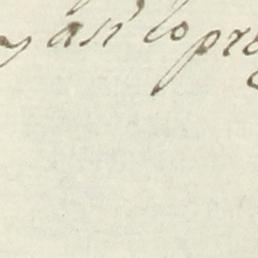 y asi lo pre